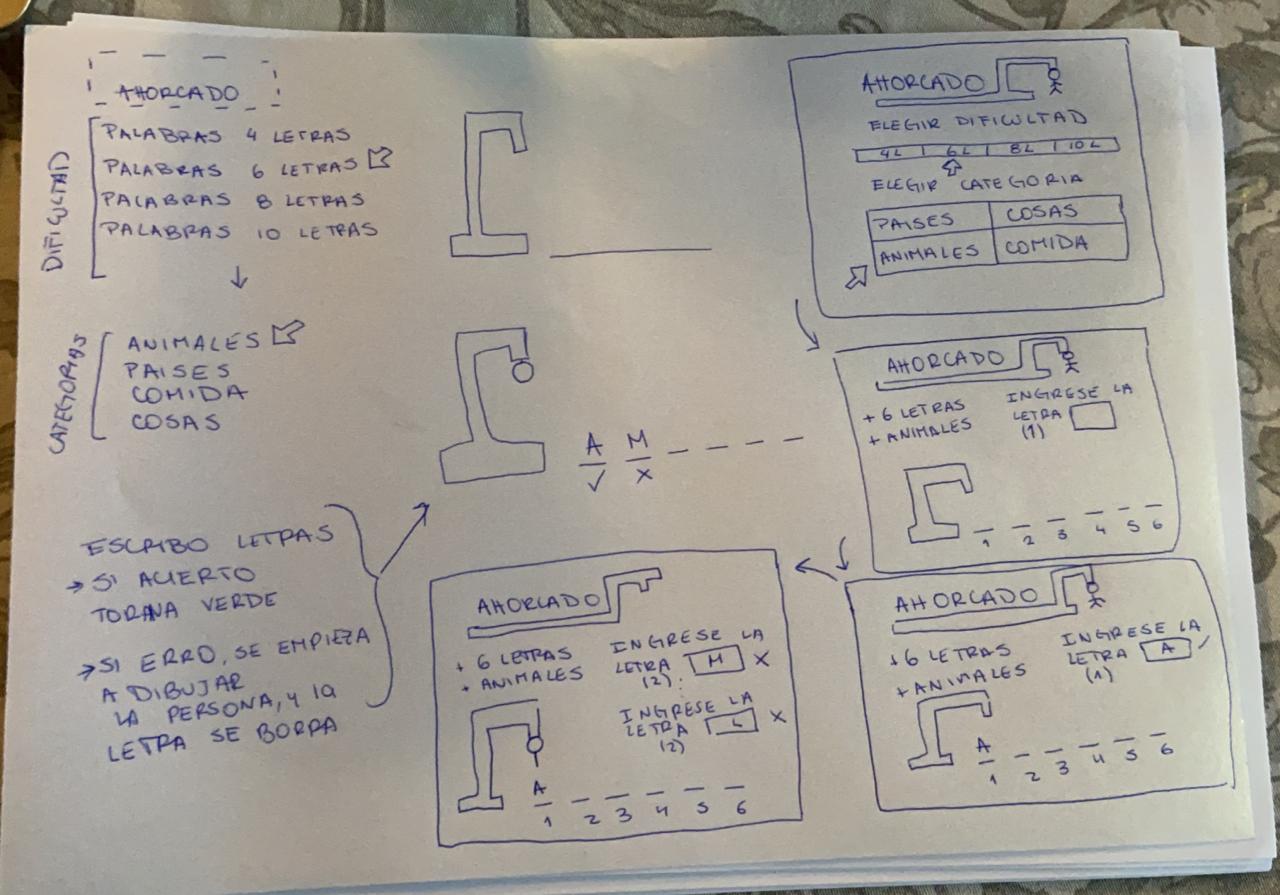 AHORCADO
DIFICULTAD
PALABRAS 4 LETRAS
PALABRAS 6 LETRAS
PALABRAS 8 LETRAS
PALABRAS 10 LETRAS
CATEGORIAS
ANIMALES
PAISES
COMIDA
COSAS
ESCRIBO LETRAS
→ SI ACIERTO
TORNA VERDE
→ SI ERRO, SE EMPIEZA
A DIBUJAR
LA PERSONA, Y la
LETRA SE BORRA
A M
✓ X
AHORCADO
ELEGIR DIFICULTAD
4L | 6L | 8L | 10L
ELEGIR CATEGORIA
PAISES COSAS
ANIMALES COMIDA
AHORCADO
+ 6 LETRAS
+ ANIMALES
INGRESE LA
LETRA
(1)
1 2 3 4 5 6
AHORCADO
+ 6 LETRAS
+ ANIMALES
INGRESE LA
LETRA A
(1)
A
1 2 3 4 5 6
AHORCADO
+ 6 LETRAS
+ ANIMALES
INGRESE LA
LETRA M X
(2)
INGRESE LA
LETRA L X
(2)
A
1 2 3 4 5 6